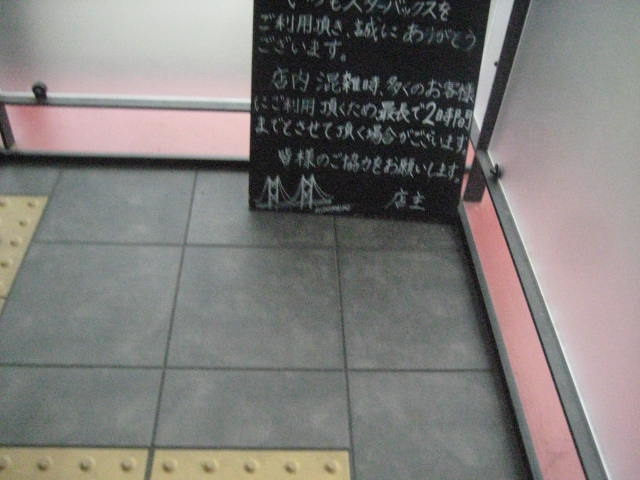 いつもスターバックスを
ご利用頂き、誠にありがとう
ございます。
店内混雑時、多くのお客様
にご利用頂くため、最長で2時間
までとさせて頂く場合がございます。
皆様のご協力をお願いします。
店主